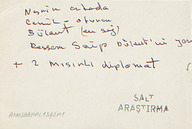 Nesrin arkada
Cemil - oturan
Bülent (en sağ)
Rasem Saip Bülent'in
+ 2 Mısırlı diplomat
SALT
ARAŞTIRMA